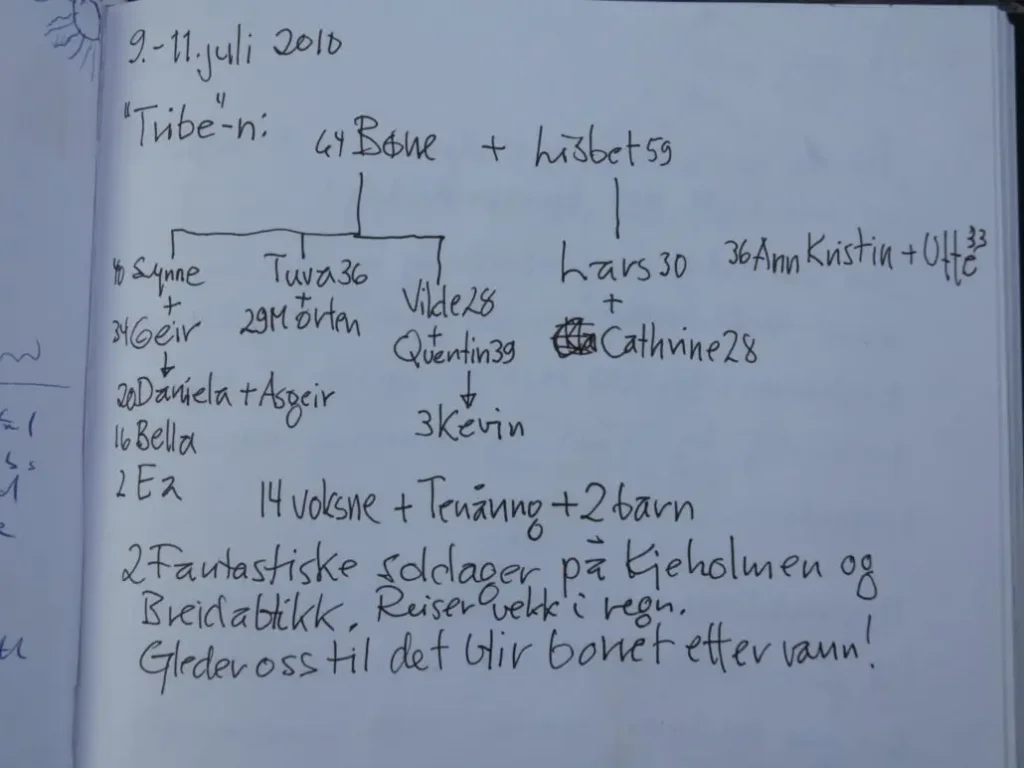 9.-11. juli 2010
"Tribe"-n:
64 Bone + Lisbet 59
40 Synne Tuva 36 Vilde 28 Lars 30 36 Ann Kristin + Uffe 33
+ + + +
34 Geir 29 Morten Quentin 39 Cathrine 28
20 Daniela + Asgeir 3 Kevin
16 Bella
2 Ea
14 voksne + Tenåring + 2 barn
2 Fantastiske soldager på Kjeholmen og
Breidablikk. Reiser vekk i regn.
Gleder oss til det blir boret etter vann!